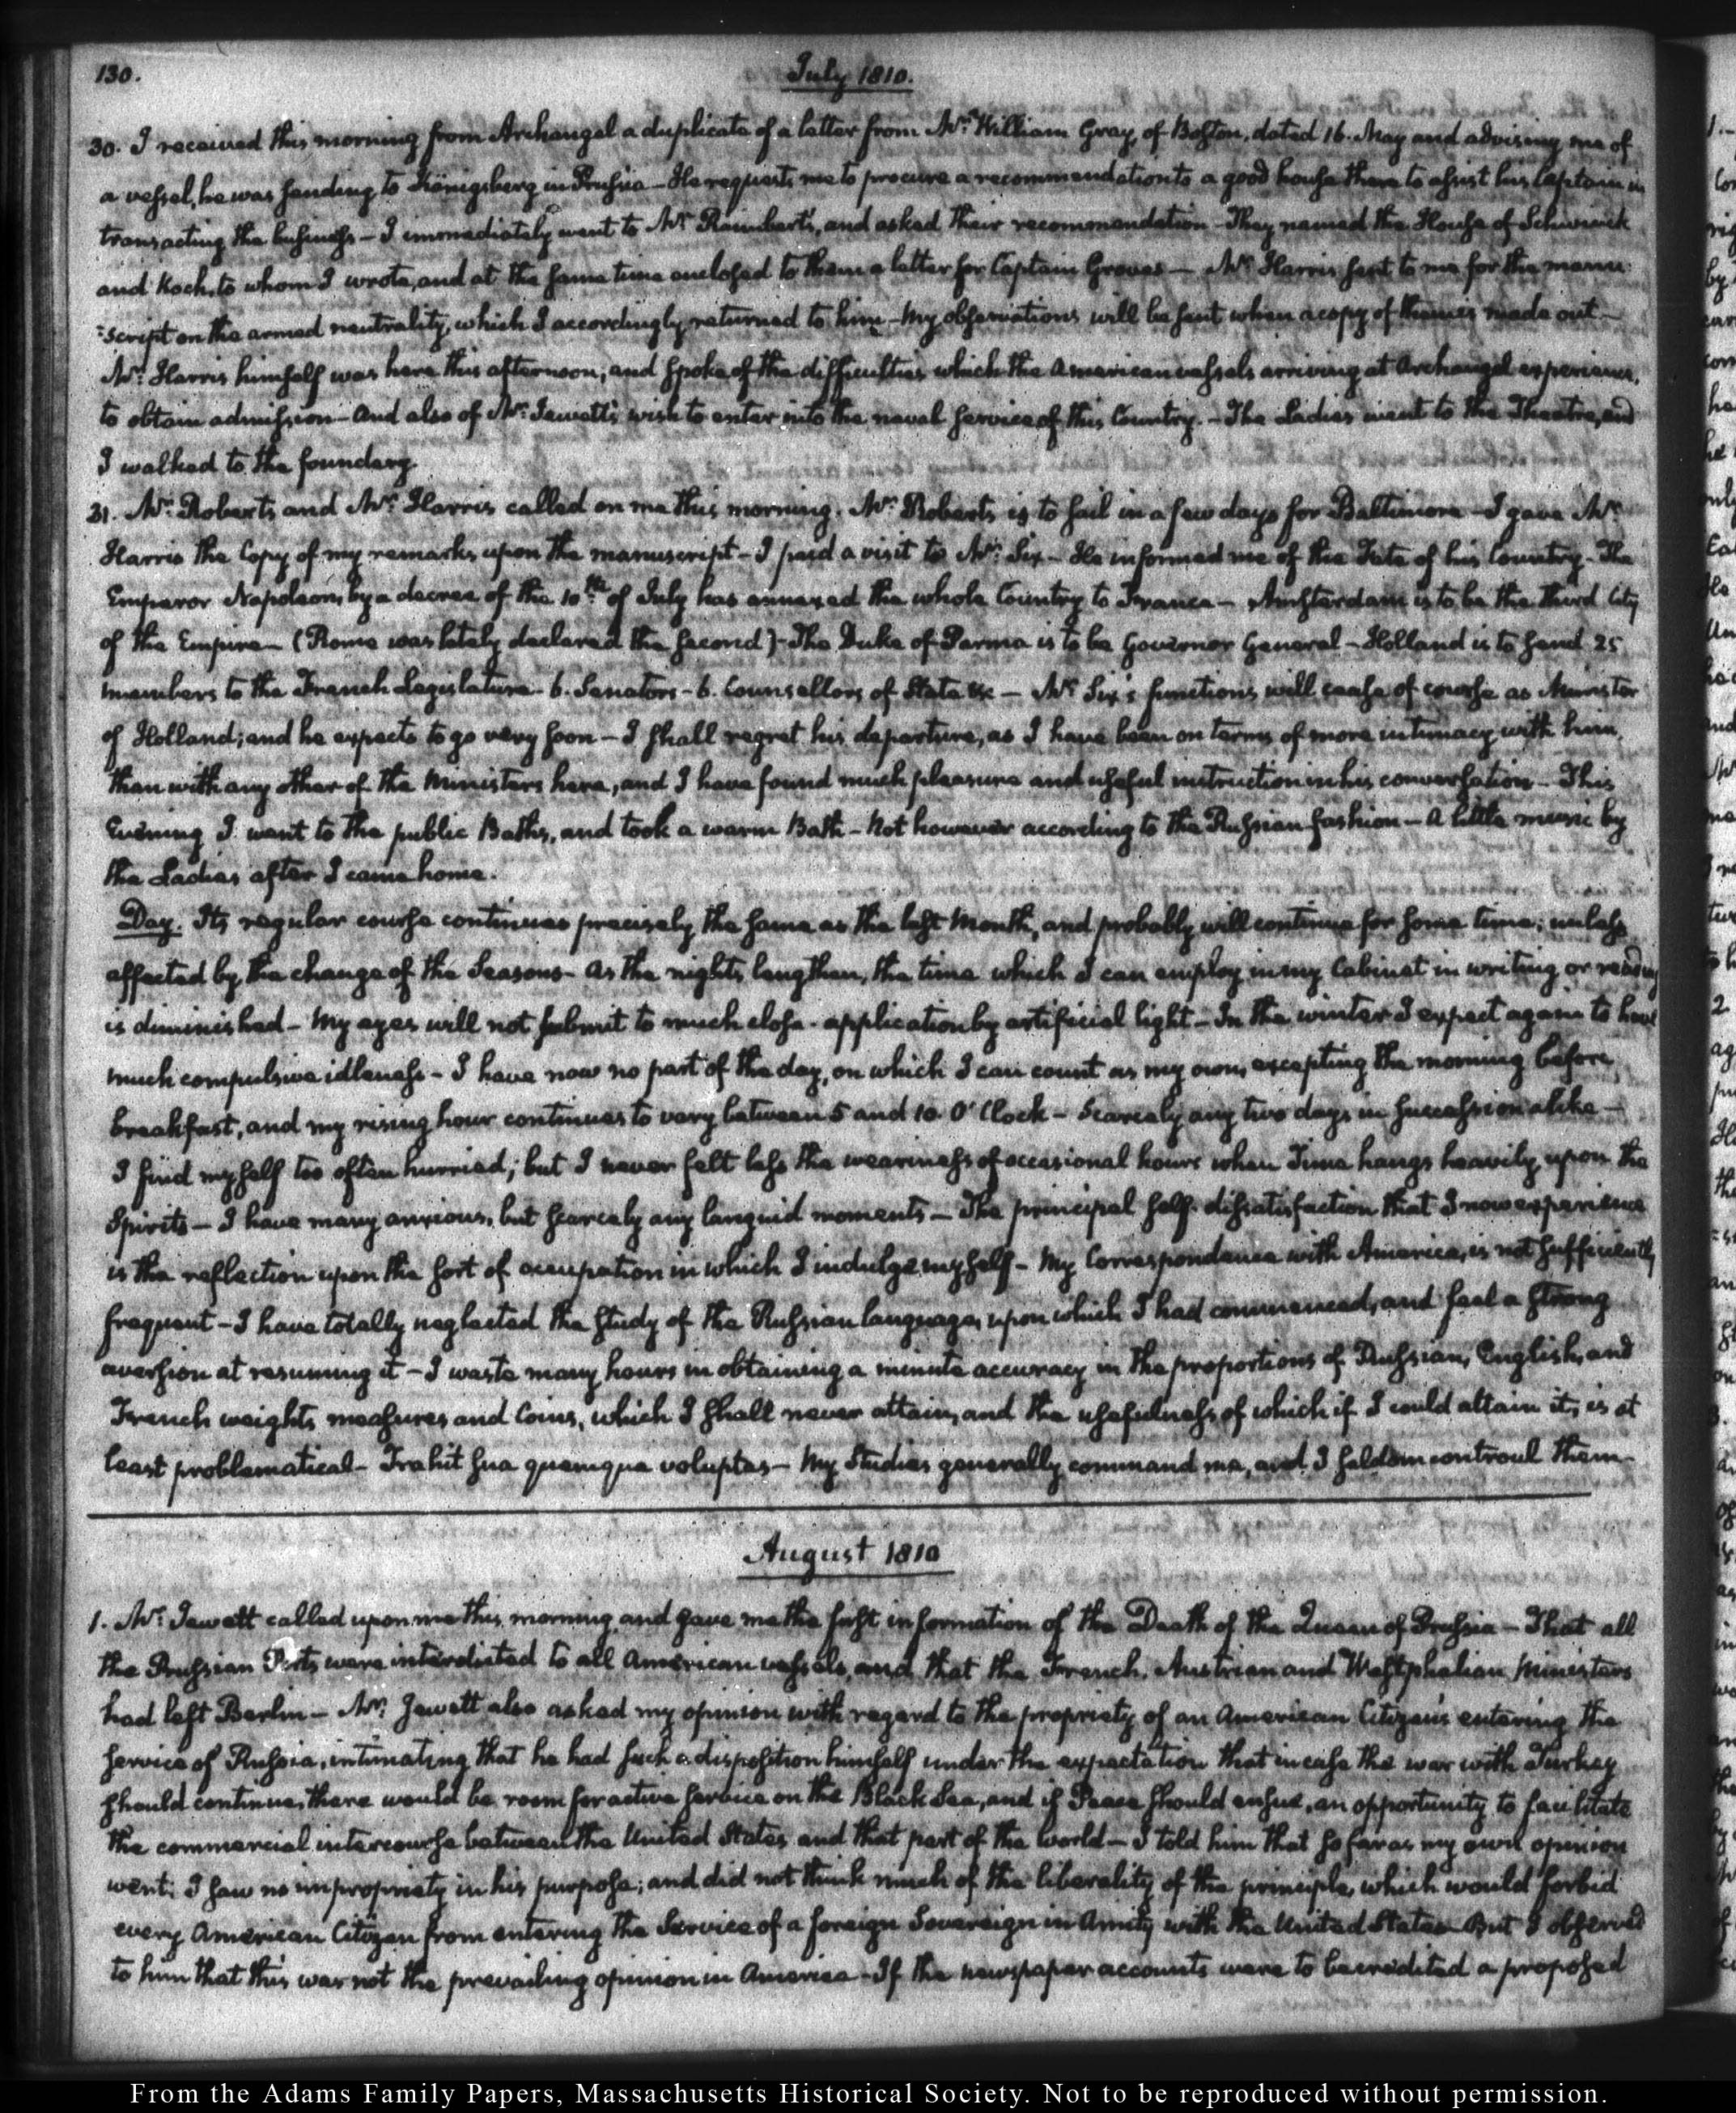 130.
July 1810.
30. I received this morning from Archangel a duplicate of a letter from Mr. William Gray, of Boston, dated 16. May and advising me of
a vessel, he was sending to Königsberg in Prussia — He requests me to procure a recommendation to a good house there to assist his Captain in
transacting the business — I immediately went to Mr Raimbert's, and asked their recommendation — They named the House of Schwinck
and Koch, to whom I wrote, and at the same time enclosed to them a letter for Captain Groves — Mr. Harris sent to me for the manu-
=script on the armed neutrality, which I accordingly returned to him — My observations will be sent when a copy of them is made out —
Mr. Harris himself was here this afternoon, and spoke of the difficulties which the American vessels arriving at Archangel experience,
to obtain admission — And also of Mr. Jewett's wish to enter into the naval service of this Country. — The Ladies went to the Theatre, and
I walked to the foundery.
31. Mr. Roberts and Mr. Harris called on me this morning. Mr. Roberts is to sail in a few days for Baltimore — I gave Mr.
Harris the Copy of my remarks upon the manuscript — I paid a visit to Mr. Six — He informed me of the Fate of his Country — The
Emperor Napoleon, by a decree of the 10th. of July has annexed the whole Country to France — Amsterdam is to be the third City
of the Empire — (Rome was lately declared the second) — The Duke of Parma is to be Governor General — Holland is to send 25
members to the French Legislature — 6. Senators — 6. Counsellors of State &c — Mr Six's functions will cease of course as Minister
of Holland; and he expects to go very soon — I shall regret his departure, as I have been on terms of more intimacy with him,
than with any other of the Ministers here, and I have found much pleasure and useful instruction in his conversation — This
Evening I went to the public Baths, and took a warm Bath — Not however according to the Russian fashion — A little music by
the Ladies after I came home.
Day. Its regular course continues precisely the same as the last Month, and probably will continue for some time; unless
affected by the change of the Seasons — As the nights lengthen, the time which I can employ in my Cabinet in writing or reading
is diminished — My eyes will not submit to much close application by artificial light — In the winter I expect again to have
much compulsive idleness — I have now no part of the day, on which I can count as my own, excepting the morning before
breakfast, and my rising hour continues to vary between 5 and 10 O'Clock — Scarcely any two days in succession alike —
I find myself too often hurried; but I never felt less the weariness of occasional hours when Time hangs heavily upon the
Spirits — I have many anxious, but scarcely any languid moments — The principal self-dissatisfaction that I now experience
is the reflection upon the sort of occupation in which I indulge myself — My Correspondence with America, is not sufficiently
frequent — I have totally neglected the study of the Russian language, upon which I had commenced, and feel a strong
aversion at resuming it — I waste many hours in obtaining a minute accuracy in the proportions of Russian, English, and
French weights, measures and Coins, which I shall never attain, and the usefulness of which if I could attain it, is at
least problematical — Trahit sua quemque voluptas — My Studies generally command me, and I seldom controul them —
August 1810
1. Mr. Jewett called upon me this morning, and gave me the first information of the Death of the Queen of Prussia — That all
the Prussian Ports were interdicted to all American vessels, and that the French, Austrian and Westphalian Ministers
had left Berlin — Mr. Jewett also asked my opinion with regard to the propriety of an American Citizen's entering the
service of Russia, intimating that he had such a disposition himself under the expectation that in case the war with Turkey
should continue, there would be room for active service on the Black Sea, and if Peace should ensue, an opportunity to facilitate
the commercial intercourse between the United States and that part of the world — I told him that so far as my own opinion
went, I saw no impropriety in his purpose; and did not think much of the liberality of the principle, which would forbid
every American Citizen from entering the Service of a foreign Sovereign in Amity with the United States — But I observed
to him that this was not the prevailing opinion in America — If the newspaper accounts were to be credited a proposed
From the Adams Family Papers, Massachusetts Historical Society. Not to be reproduced without permission.